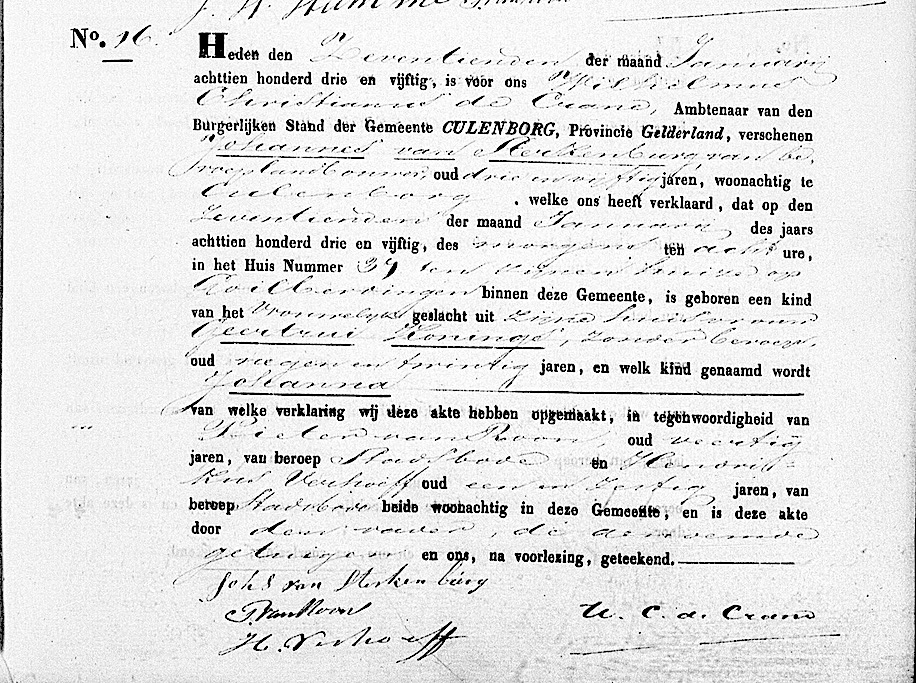 No. 16.
Heden den Zeventienden der maand Januarij
achttien honderd drie en vijftig, is voor ons Wilhelmus
Christianus de Crane, Ambtenaar van den
Burgerlijken Stand der Gemeente CULENBORG, Provincie Gelderland, verschenen
Johannes van Sterkenburg van be-
roep landbouwer oud drie en vijftig jaren, woonachtig te
Culenborg . welke ons heeft verklaard, dat op den
Zeventienden der maand Januarij des jaars
achttien honderd drie en vijftig, des morgens ten acht ure,
in het Huis Nummer 34 ten zijnen huize op
Goilberdingen binnen deze Gemeente, is geboren een kind
van het Vrouwelijk geslacht uit zijne huisvrouw
Geertrui Konings, zonder beroep,
oud negen en twintig jaren, en welk kind genaamd wordt
Johanna
van welke verklaring wij deze akte hebben opgemaakt, in tegenwoordigheid van
Pieter van Roon, oud veertig
jaren, van beroep Stadsbode en Hendri-
kus Verhoeff oud een en zestig jaren, van
beroep Stadsbode beide woonachtig in deze Gemeente, en is deze akte
door den vader, de genoemde
getuigen en ons, na voorlezing, geteekend.
Johs van Sterkenburg
P. van Roon
H. Verhoeff
W. C. de Crane